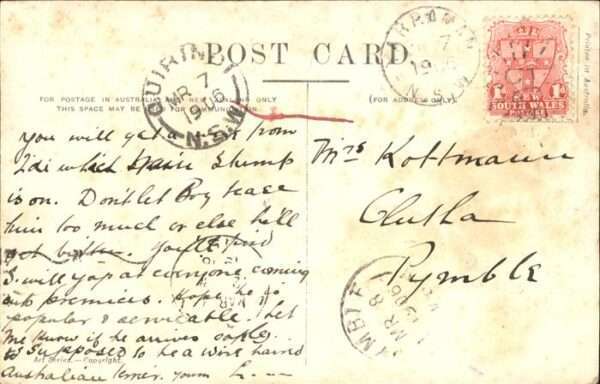 POST CARD.
FOR POSTAGE IN AUSTRALIA AND NEW ZEALAND ONLY
THIS SPACE MAY BE USED FOR COMMUNICATION.
(FOR ADDRESS ONLY.)
Printed in Australia.
QUIRINDI
MR 7
1906
N.S.W
7
N.S.W
SOUTH WALES
POSTAGE
You will get a from
which Stump
is on. Dont let Boy tease
him too much or else he'll
get bitten. You'll find
I will yap at everyone coming
into premices. Hope he is
popular & servicable. Let
me know if he arrives safely.
is supposed to be a wire haired
Australian terrier. yours
Mrs Kottmann
Clutha
Pymble
MR 8
1906
Art Series.—Copyright.